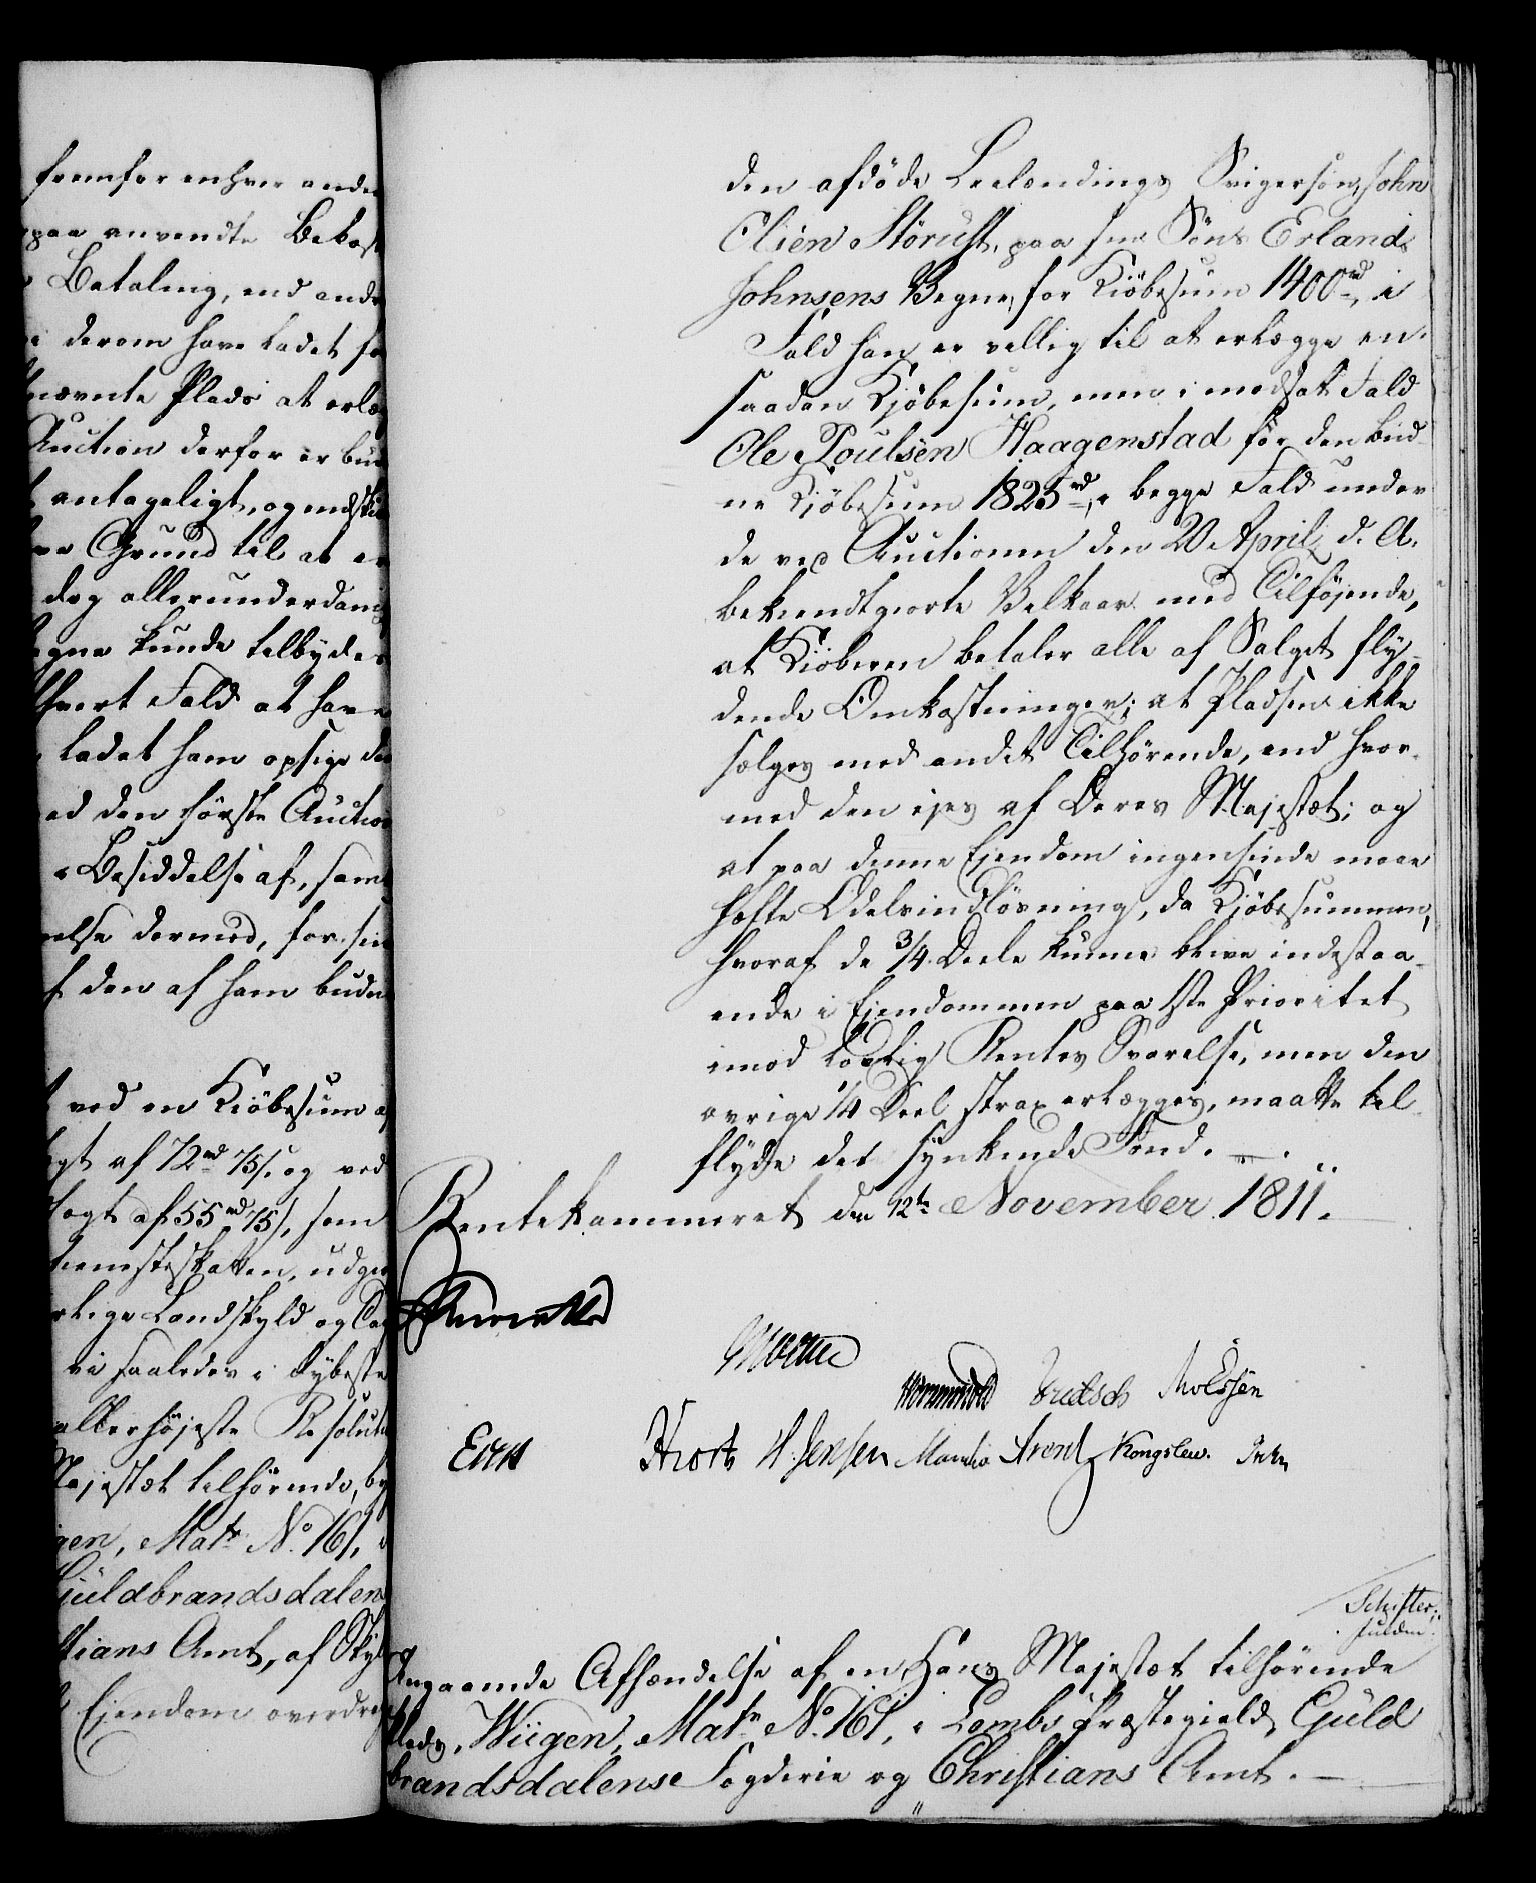 fremfor enhver anden
paa anvendte Bekost
Betaling, end andre
derom have ladet
nævnte Plads at erlæg
Auction derfor er bud
antageligt, og endskiø
Grund til at
dog allerunderdanig
egne kunde tilbydes
hvert Fald at have
ladet ham opsige
ed den første Auction
Besiddelse af, samt
else dermed, for sin
f den af ham budne
ved en Kiøbesum af
gt af 72 rd 75 s. og ved
agt af 55 rd 75 s, som
ienesteskatten, udgiør
rlige Landskyld og
vi saaledes i dybeste
allerhøjeste Resoluti
Majestæt tilhørende,
gen, Matr. No. 161,
Guldbrandsdalens
stians Amt, af Skyl
Ejendom overdrages
den afdøde Leilændings Svigersøn, John
Elien Størust, paa sin Søns Erland
Johnsens Vegne, for Kiøbesum 1400 rd, i
Fald han er villig til at erlægge en
saadan Kjøbesum, men i modsat Fald
Ole Poulsen Haagenstad for den bud-
ne Kjøbesum 1825 rd, i begge Fald under
de ved Auctionen den 20 April d. A.
bekiendtgiorte Vilkaar med Tilføjende,
at Kiøberen betaler alle af Salget fly-
dende Omkostninger; at Pladsen ikke
sælges med andet Tilhørende, end hvor-
med den ejes af Deres Majestæt; og
at paa denne Ejendom ingensinde maae
hæfte Odelsindløsning, da Kjøbesummen,
hvoraf de 3/4 Deele kunne blive indestaa-
ende i Ejendommen paa 1ste Prioritet
imod lovlig Rentes Svarelse, men den
øvrige 1/4 Deel strax erlægges, maatte til-
flyde det synkende Fond.
Rentekammeret den 12te November 1811.
Wormskiold Fridsch Moessen
Hiort H. Jensen Manthe Arent Kongslew.
Schifter
Angaaende Afhændelse af en Hans Majestæt tilhørende
Plads, Wiigen, Matr. No. 161, i Lombs Præstegield, Guld
brandsdalens Fogderie og Christians Amt.